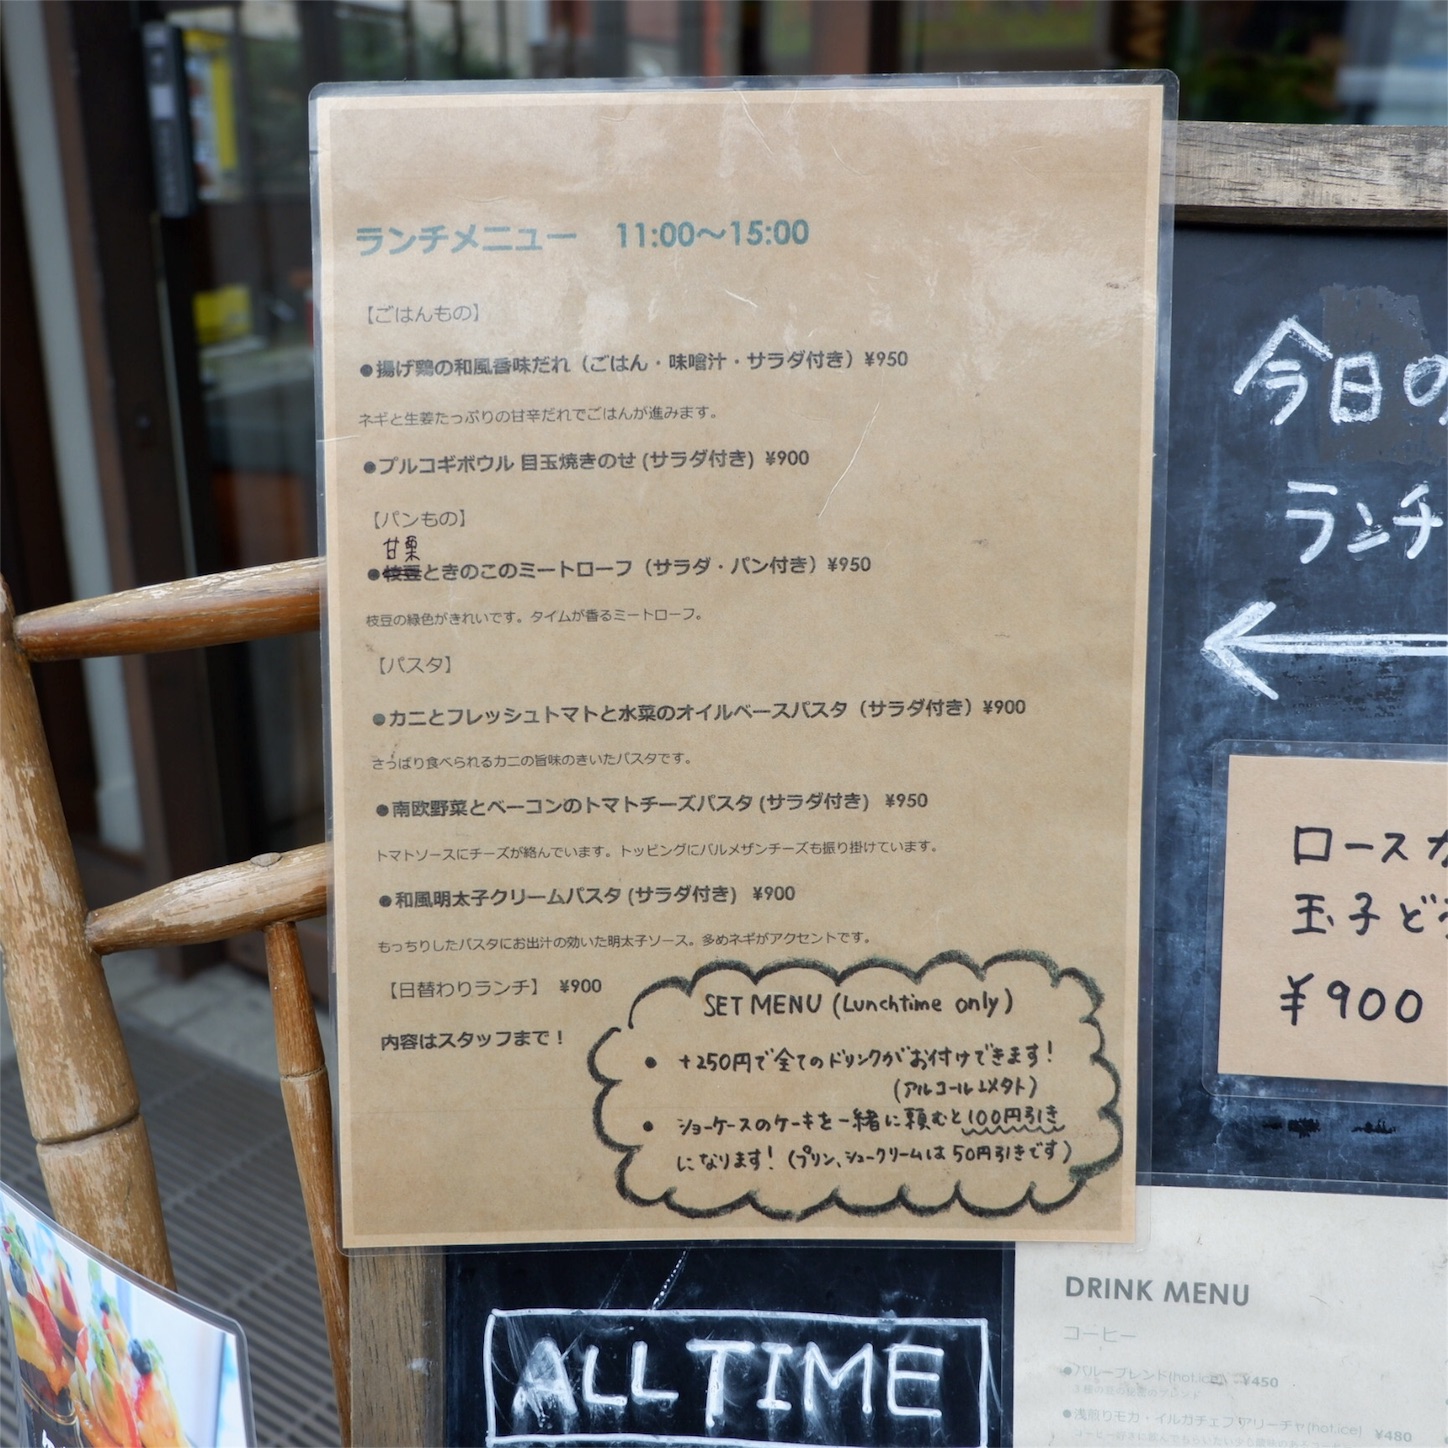 ランチメニュー 11:00〜15:00
【ごはんもの】
●揚げ鶏の和風香味だれ（ごはん・味噌汁・サラダ付き）¥950
ネギと生姜たっぷりの甘辛だれでごはんが進みます。
●プルコギボウル 目玉焼きのせ (サラダ付き) ¥900
【パンもの】
甘栗
●枝豆ときのこのミートローフ（サラダ・パン付き）¥950
枝豆の緑色がきれいです。タイムが香るミートローフ。
【パスタ】
●カニとフレッシュトマトと水菜のオイルベースパスタ（サラダ付き）¥900
さっぱり食べられるカニの旨味のきいたパスタです。
●南欧野菜とベーコンのトマトチーズパスタ (サラダ付き) ¥950
トマトソースにチーズが絡んでいます。トッピングにパルメザンチーズも振り掛けています。
●和風明太子クリームパスタ (サラダ付き) ¥900
もっちりしたパスタにお出汁の効いた明太子ソース。多めネギがアクセントです。
【日替わりランチ】 ¥900
内容はスタッフまで！
SET MENU (Lunchtime only)
● +250円で全てのドリンクがお付けできます！
(アルコール以外)
● ショーケースのケーキを一緒に頼むと100円引き
になります！(プリン、シュークリームは50円引きです)
今日の
ランチ
ロース
玉子ど
¥900
ALL TIME
DRINK MENU
コーヒー
●バルーブレンド(hot.ice) ¥450
●浅煎りモカ・イルガチェフアリーチャ(hot.ice) ¥480